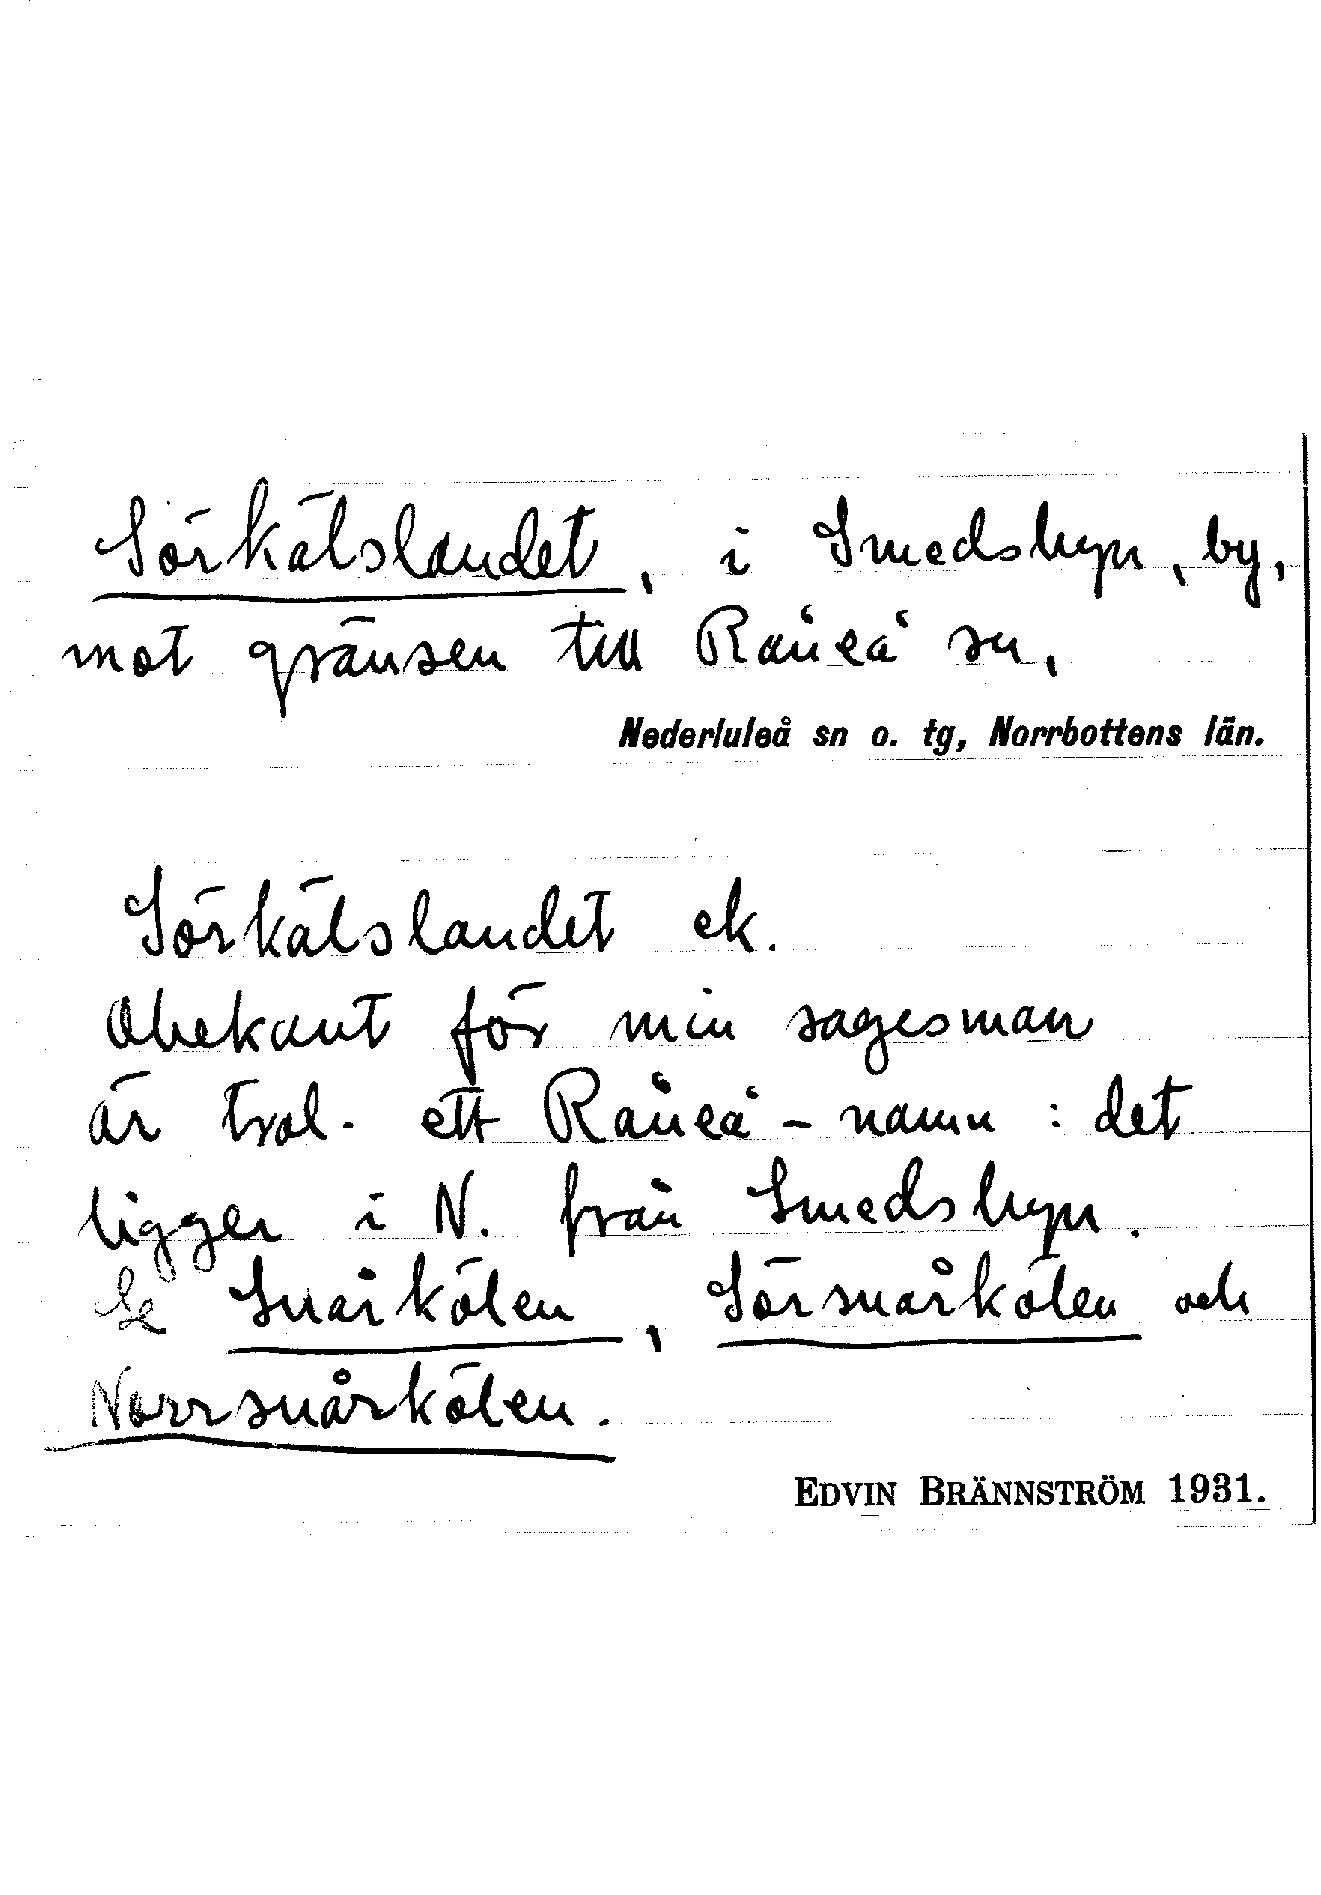 Sörkälslandet, i Smedsbyn, by,
mot gränsen till Råneå sn,
Nederluleå sn o. tg, Norrbottens län.
Sörkälslandet ek.
Obekant för min sagesman
är trol. ett Råneå-namn : det
ligger i N. från Smedsbyn.
Se Snårkölen, Sörsnårkölen och
Norrsnårkölen.
EDVIN BRÄNNSTRÖM 1931.